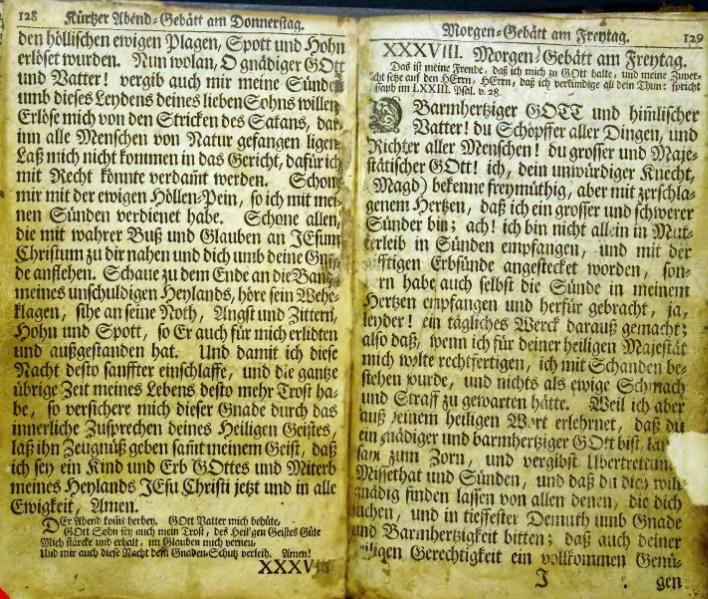 128 Kürtzer Abend-Gebätt am Donnerstag.
den höllischen ewigen Plagen, Spott und Hohn
erlöset wurden. Nun wolan, O gnädiger GOtt
und Vatter! vergib auch mir meine Sünden
umb dieses Leydens deines lieben Sohns willen
Erlöse mich von den Stricken des Satans, dar-
inn alle Menschen von Natur gefangen ligen
Laß mich nicht kommen in das Gericht, dafür ich
mit Recht könnte verdam̄t werden. Schone
mir mit der ewigen Höllen-Pein, so ich mit mei-
nen Sünden verdienet habe. Schone allen,
die mit wahrer Buß und Glauben an JEsum
Christum zu dir nahen und dich umb deine
de anflehen. Schaue zu dem Ende an die
meines unschuldigen Heylands, höre sein Wehe-
klagen, sihe an seine Noth, Angst und Zittern,
Hohn und Spott, so Er auch für mich erlidten
und außgestanden hat. Und damit ich diese
Nacht desto sanffter einschlaffe, und die gantze
übrige Zeit meines Lebens desto mehr Trost ha-
be, so versichere mich dieser Gnade durch das
innerliche Zusprechen deines Heiligen Geistes,
laß ihn Zeugnüß geben sam̄t meinem Geist, daß
ich sey ein Kind und Erb GOttes und Miterb
meines Heylands JEsu Christi jetzt und in alle
Ewigkeit, Amen.
DEr Abend kom̄t herbey. GOtt Vatter mich behüte,
GOtt Sohn sey auch mein Trost, des Heil'gen Geistes Güte
Mich stärcke und erhalt, im Glauben mich verneu,
Und mir auch diese Nacht dessn Gnaden-Schutz verleih. Amen!
Morgen-Gebätt am Freytag. 129
XXXVIII. Morgen-Gebätt am Freytag.
Das ist meine Freude, daß ich mich zu GOtt halte, und meine Zuver-
sicht setze auf den HErrn, HErrn, daß ich verkündige all dein Thun: spricht
Assaph im LXXIII. Psal. v. 28.
O Barmhertziger GOTT und him̄lischer
Vatter! du Schöpffer aller Dingen, und
Richter aller Menschen! du grosser und Maje-
stätischer GOtt! ich, dein unwürdiger Knecht,
(Magd) bekenne freymüthig, aber mit zerschla-
genem Hertzen, daß ich ein grosser und schwerer
Sünder bin; ach! ich bin nicht allein in Mut-
terleib in Sünden empfangen, und mit der
gifftigen Erbsünde angestecket worden, son-
dern habe auch selbst die Sünde in meinem
Hertzen empfangen und herfür gebracht, ja,
leyder! ein tägliches Werck darauß gemacht;
also daß, wenn ich für deiner heiligen Majestät
mich wolte rechtfertigen, ich mit Schanden be-
stehen wurde, und nichts als ewige Schmach
und Straff zu gewarten hätte. Weil ich aber
auß deinem heiligen Wort erlehrnet, daß du
ein gnädiger und barmhertziger GOtt bist,
sam zum Zorn, und vergibst Ubertretung,
Missethat und Sünden, und daß du dich wilt
gnädig finden lassen von allen denen, die dich
suchen, und in tieffester Demuth umb Gnade
und Barmhertzigkeit bitten; daß auch deiner
heiligen Gerechtigkeit ein vollkommen Genü-
J gen